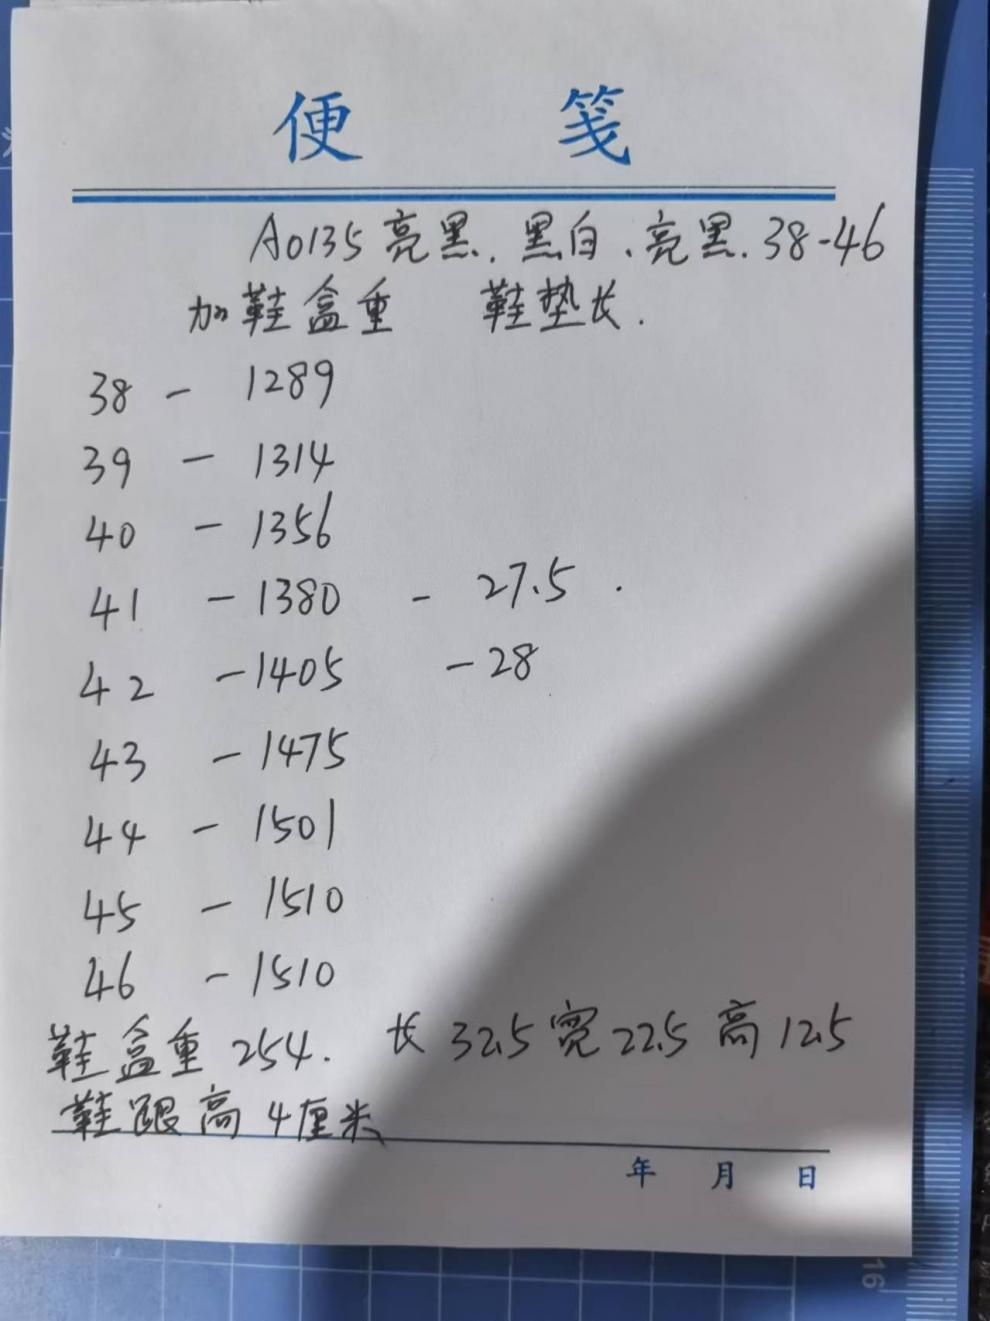 便 笺
A0135亮黑.黑白.亮黑.38-46
加鞋盒重 鞋垫长.
38 - 1289
39 - 1314
40 - 1356
41 - 1380 - 27.5 .
42 - 1405 - 28
43 - 1475
44 - 1501
45 - 1510
46 - 1510
鞋盒重 254. 长 32.5 宽 22.5 高 12.5
鞋跟高 4厘米
年 月 日
16